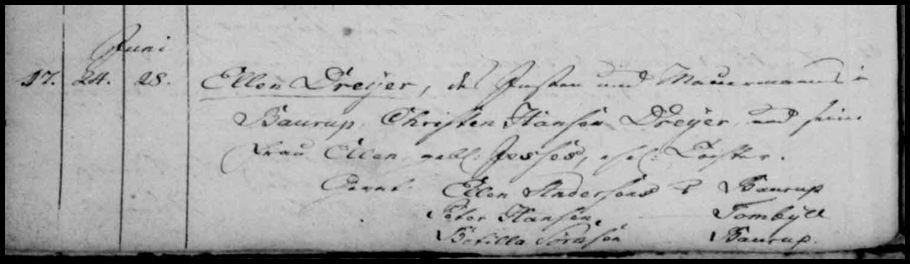 Juni
17. 24. 28. Ellen Dreÿer, des Insten und Mauermanns in
Baurup, Christen Hansen Dreÿer und seiner
Frau Ellen, gebl. Jessen, ehel. Tochter.
Gevat. Ellen Andersens Baurup
Peter Hansen Tombüll
Botilla Baurup.